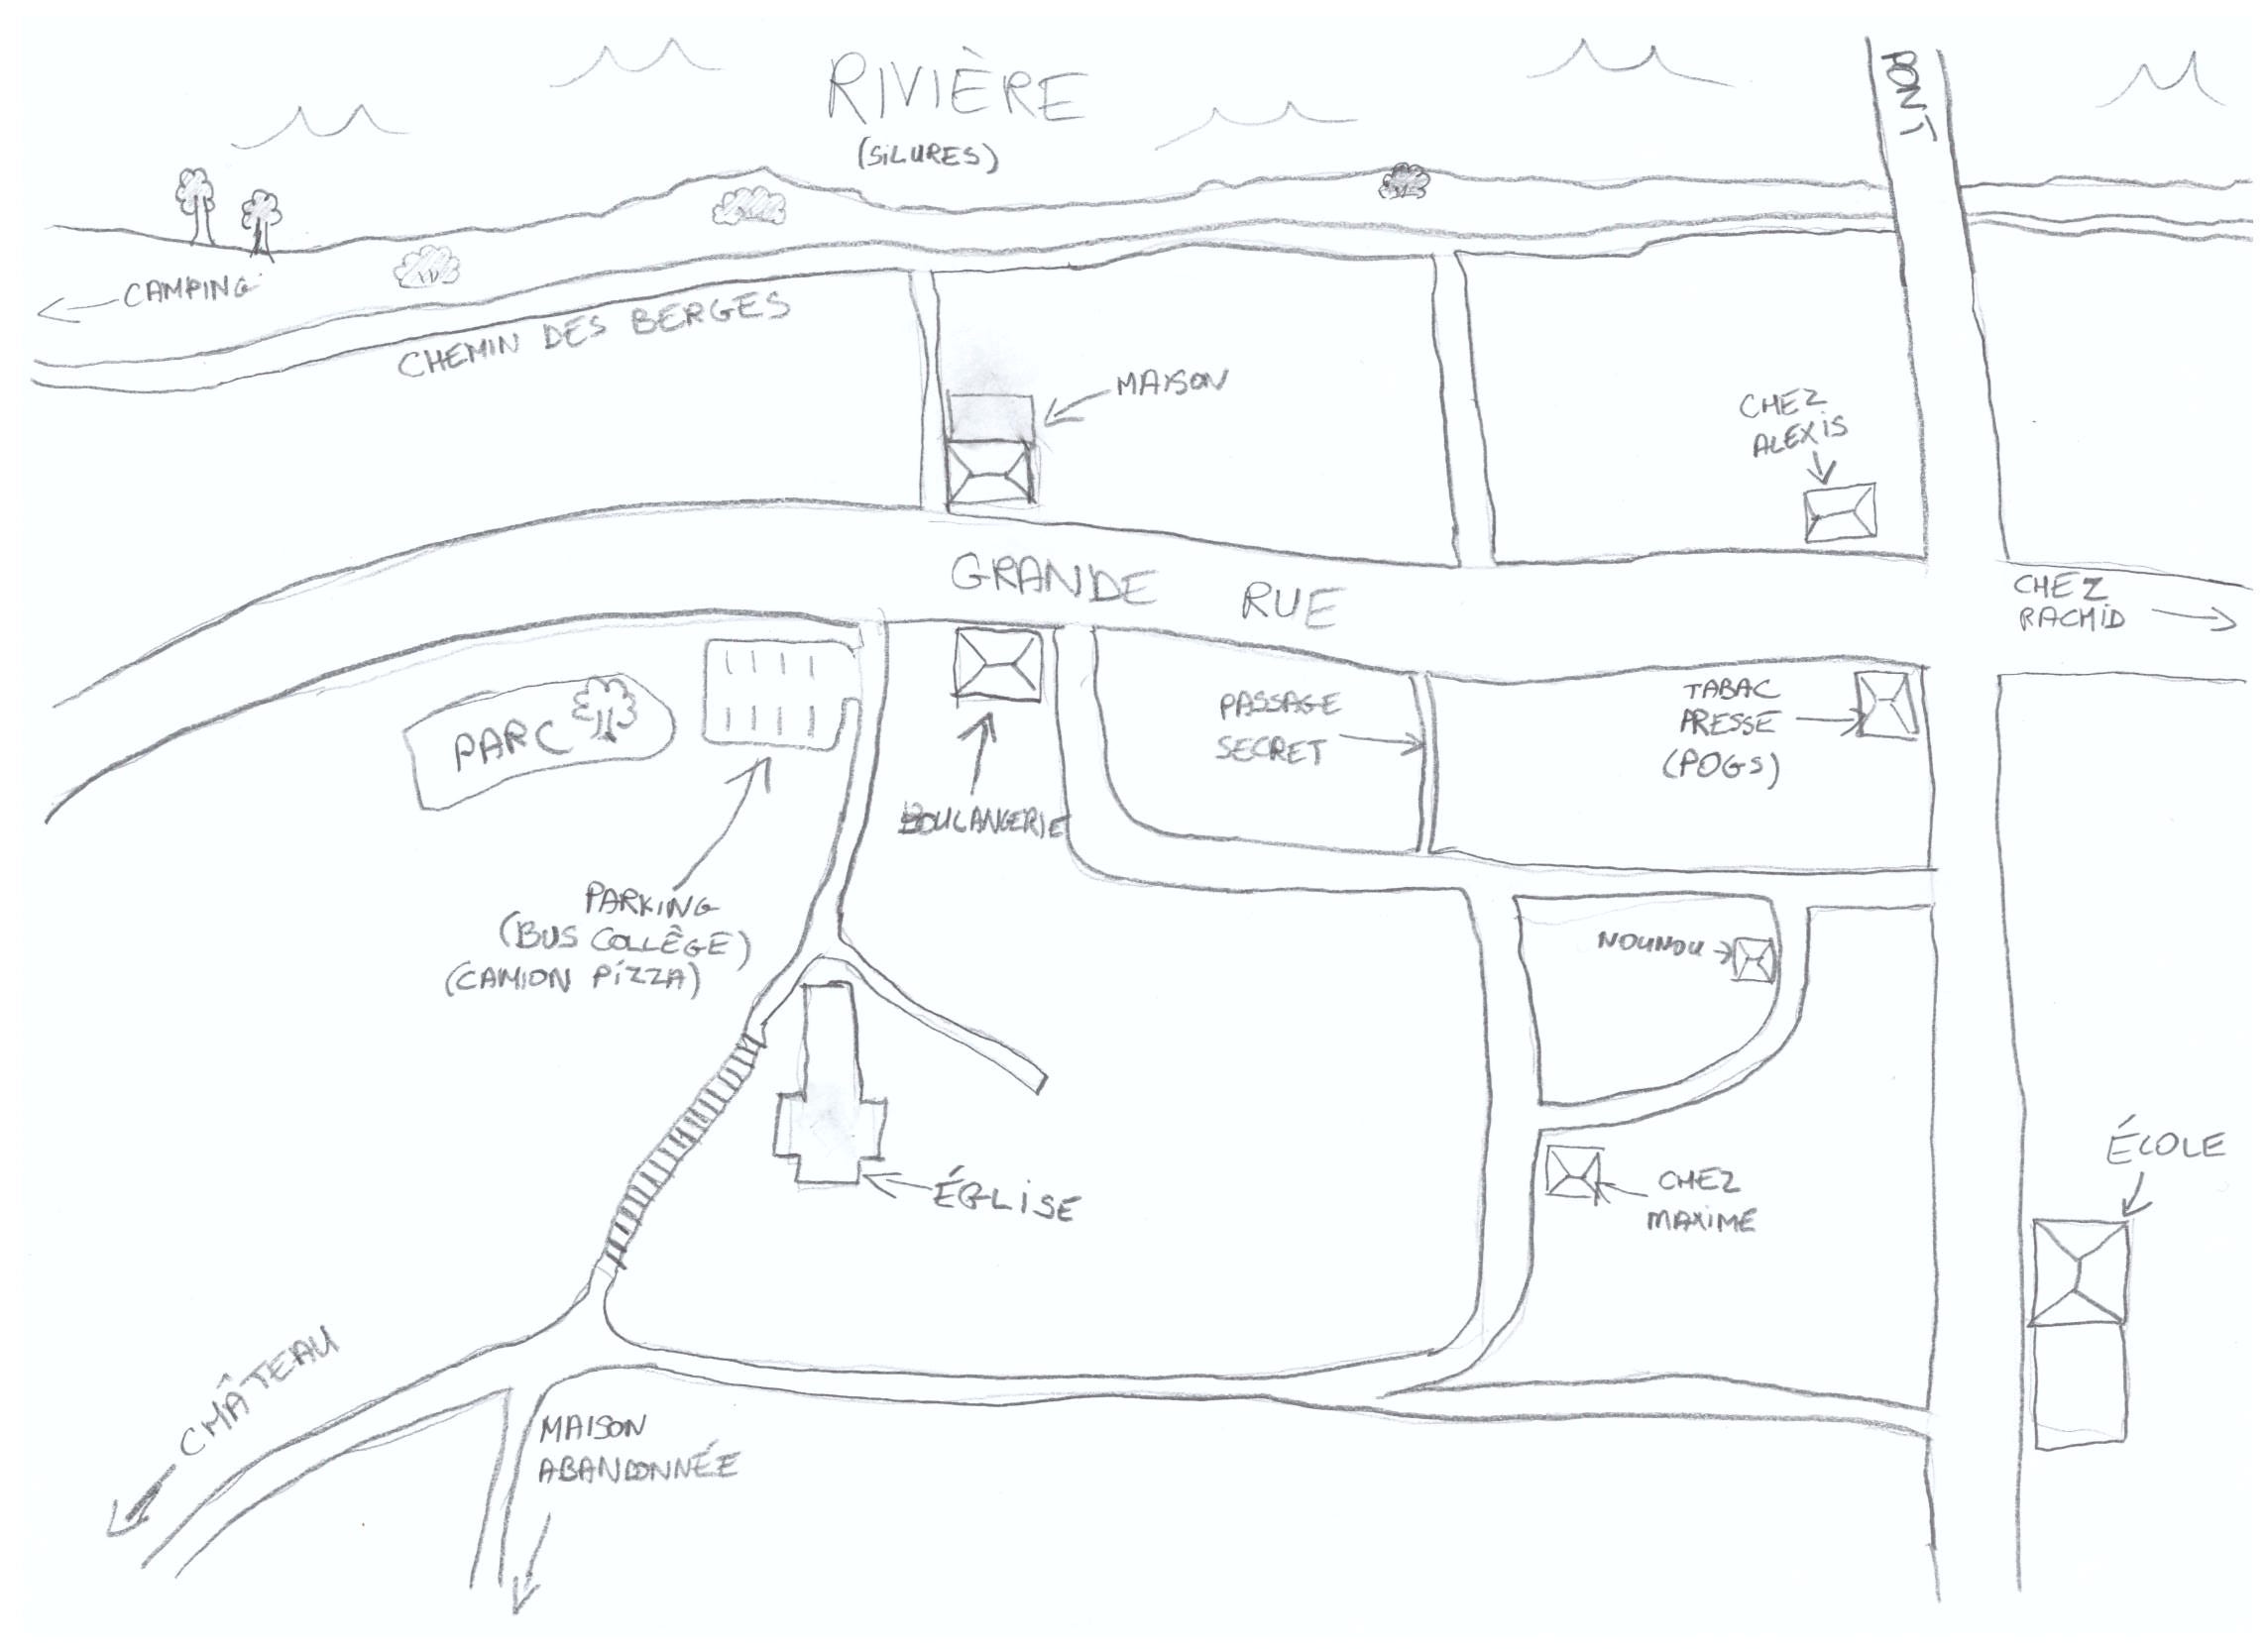 RIVIÈRE
(SILURES)
PONT
← CAMPING
CHEMIN DES BERGES
MAISON
CHEZ
ALEXIS
GRANDE RUE
CHEZ
RACHID →
PARC
PASSAGE
SECRET
TABAC
PRESSE
(POGS)
BOULANGERIE
PARKING
(BUS COLLÈGE)
(CAMION PIZZA)
NOUNOU
ÉGLISE
CHEZ
MAXIME
ÉCOLE
CHÂTEAU
MAISON
ABANDONNÉE